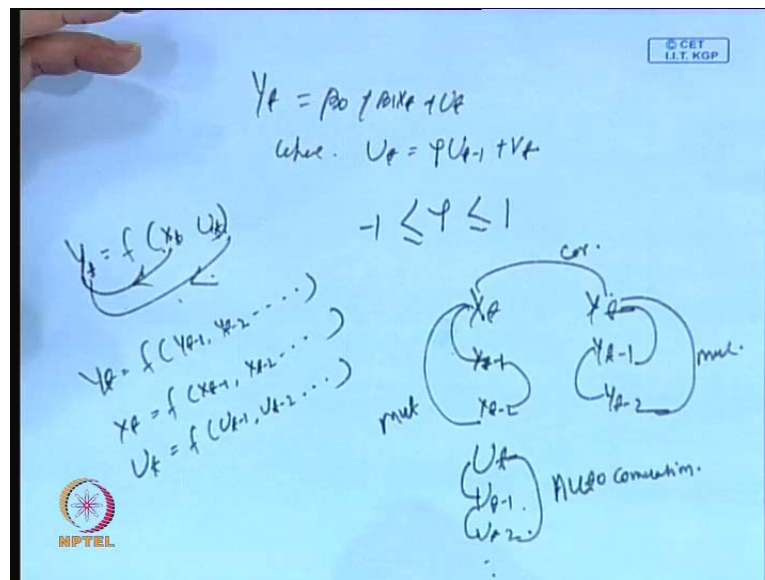 © CET
I.I.T. KGP
Yt = β0 + β1Xt + Ut
where. Ut = φUt-1 + Vt
-1 ≤ φ ≤ 1
Yt = f (Xt, Ut)
Yt = f (Yt-1, Yt-2 ....)
Xt = f (Xt-1, Xt-2 ...)
Ut = f (Ut-1, Ut-2 ...)
cor.
Xt Yt
Xt-1 Yt-1
Xt-2 Yt-2
mult mul.
Ut
Ut-1.
Ut-2.
:
Auto correlation.
NPTEL